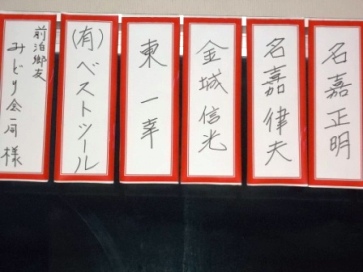 名嘉正明
名嘉律夫
金城信光
東一幸
(有)ベストツール
前泊郷友
みどり会一同様